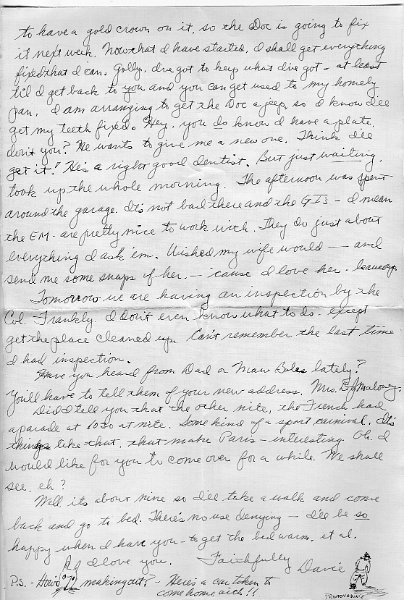 to have a gold crown on it, so the Doc is going to fix
it next week. Now that I have started, I shall get everything
fixed that I can. Golly, I've got to keep what I've got - at least
til I get back to you and you can get used to my homely
pan. I am arranging to get the Doc a jeep so I know I'll
get my teeth fixed. Hey, you do know I have a plate,
don't you? He wants to give me a new one. Think I'll
get it! He's a right good dentist. But just waiting
took up the whole morning. The afternoon was spent
around the garage. It's not bad there and the G I's - I mean
the EM - are pretty nice to work with. They do just about
everything I ask 'em. Wished my wife would -- and
send me some snaps of her -- 'cause I love her.
Tomorrow we are having an inspection by the
Col. Frankly I don't even know what to do - except
get the place cleaned up. Can't remember the last time
I had inspection.
Have you heard from Dad or Maw lately?
You'll have to tell them of your new address, Mrs.
Did I tell you that the other nite, the French had
a parade at 10:00 at nite. Some kind of a sport carnival. It's
things like that, that make Paris - interesting. Oh I
would like for you to come over for a while. We shall
see, eh?
Well its about nine so I'll take a walk and come
back and go to bed. There's no use denying - I'll be so
happy when I have you - to get the bed warm, et al.
I love you. Faithfully
P.S. - How making out? - Here's a
come home with!!